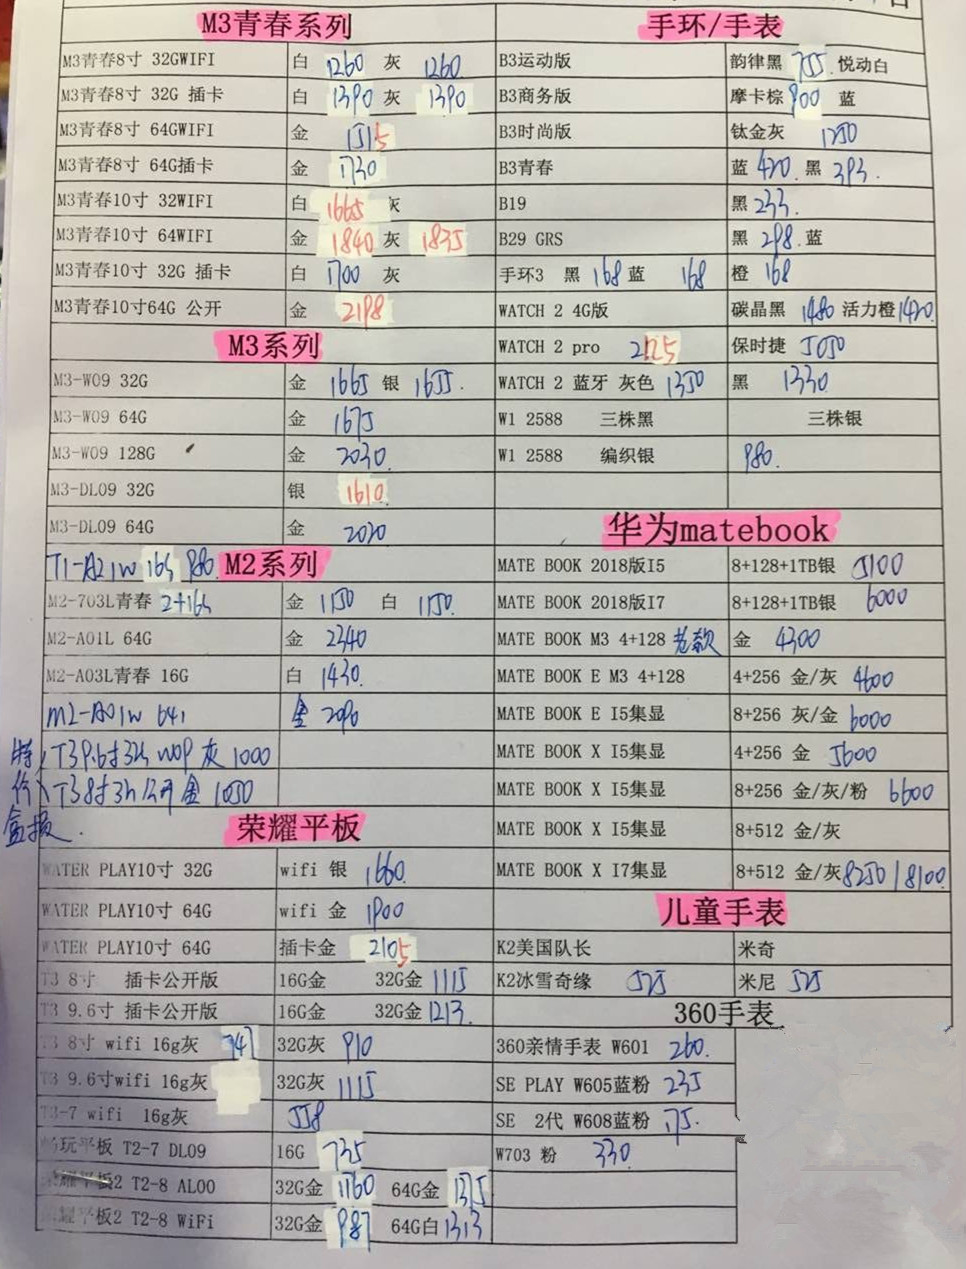 M3青春系列
M3青春8寸 32GWIFI 白 1260 灰 1260
M3青春8寸 32G 插卡 白 1390 灰 1390
M3青春8寸 64GWIFI 金 1515
M3青春8寸 64G插卡 金 1730
M3青春10寸 32WIFI 白 1665 灰
M3青春10寸 64WIFI 金 1840 灰 1835
M3青春10寸 32G 插卡 白 1700 灰
M3青春10寸64G 公开 金 2198
M3系列
M3-W09 32G 金 1665 银 1655.
M3-W09 64G 金 1675
M3-W09 128G 金 2030.
M3-DL09 32G 银 1610
M3-DL09 64G 金 2020
T1-A21W 16G 980. M2系列
M2-703L青春 2+16G 金 1150 白 1150.
M2-A01L 64G 金 2340
M2-A03L青春 16G 白 1430.
M2-A01W 64G 金 2090
特价 盒损.
T39.6寸32G W09 灰 1000
T38寸32G公开 金 1050
荣耀平板
WATER PLAY10寸 32G wifi 银 1660.
WATER PLAY10寸 64G wifi 金 1900
WATER PLAY10寸 64G 插卡金 2105
T3 8寸 插卡公开版 16G金 32G金 1115
T3 9.6寸 插卡公开版 16G金 32G金 1213.
T3 8寸 wifi 16g灰 747 32G灰 910
T3 9.6寸wifi 16g灰 32G灰 1115
T3-7 wifi 16g灰 558
畅玩平板 T2-7 DL09 16G 735
荣耀平板2 T2-8 AL00 32G金 1160 64G金 1375
荣耀平板2 T2-8 WiFi 32G金 987 64G白 1313
手环/手表
B3运动版 韵律黑 755. 悦动白
B3商务版 摩卡棕 900 蓝
B3时尚版 钛金灰 1250
B3青春 蓝 420. 黑 393.
B19 黑 233.
B29 GRS 黑 298. 蓝
手环3 黑 168 蓝 168 橙 168
WATCH 2 4G版 碳晶黑 1480 活力橙 1420.
WATCH 2 pro 2125 保时捷 5050
WATCH 2 蓝牙 灰色 1350 黑 1330
W1 2588 三株黑 三株银
W1 2588 编织银 980.
华为matebook
MATE BOOK 2018版I5 8+128+1TB银 5100
MATE BOOK 2018版I7 8+128+1TB银 6000
MATE BOOK M3 4+128 老款 金 4300
MATE BOOK E M3 4+128 4+256 金/灰 4600
MATE BOOK E I5集显 8+256 灰/金 6000
MATE BOOK X I5集显 4+256 金 5600
MATE BOOK X I5集显 8+256 金/灰/粉 6600
MATE BOOK X I5集显 8+512 金/灰
MATE BOOK X I7集显 8+512 金/灰 8250/8100.
儿童手表
K2美国队长 米奇
K2冰雪奇缘 525 米尼 525
360手表
360亲情手表 W601 260.
SE PLAY W605蓝粉 235
SE 2代 W608蓝粉 175.
W703 粉 330.